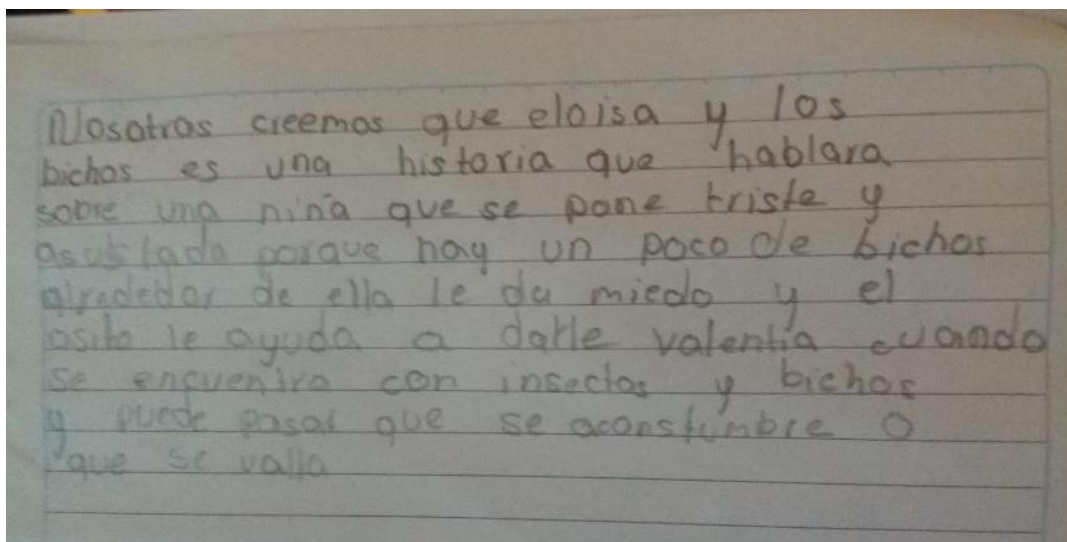 Nosotros creemos que eloisa y los
bichos es una historia que hablara
sobre una niña que se pone triste y
asustada porque hay un poco de bichos
alrededor de ella le da miedo y el
osito le ayuda a darle valentía cuando
se encuentra con insectos y bichos
y puede pasar que se aconstumbre o
que se valla